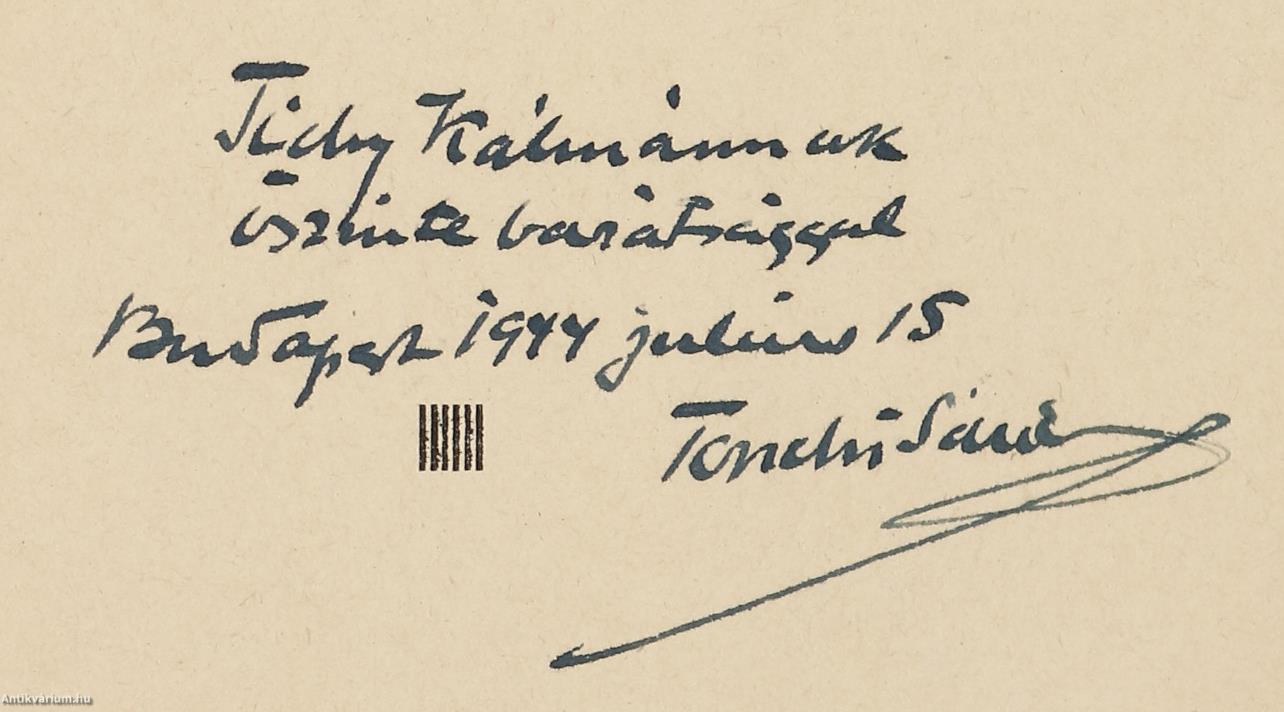 Tichy Kálmánnak
őszinte barátsággal
Budapest 1944 július 15
Sándor
Antikvárium.hu